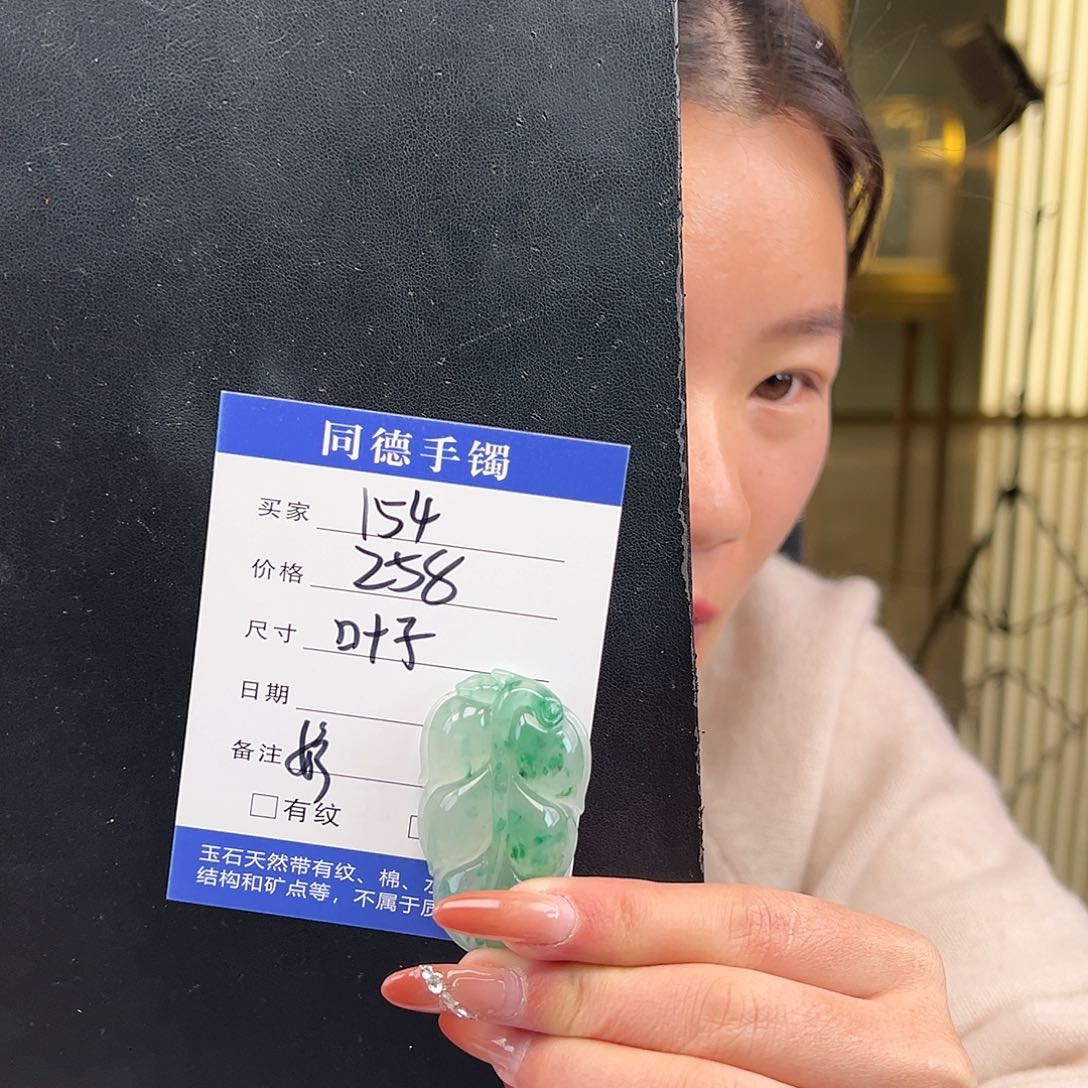 同德手镯
买家 154
价格 258
尺寸 叶子
日期
备注
有纹
玉石天然带有纹、棉、
结构和矿点等，不属于